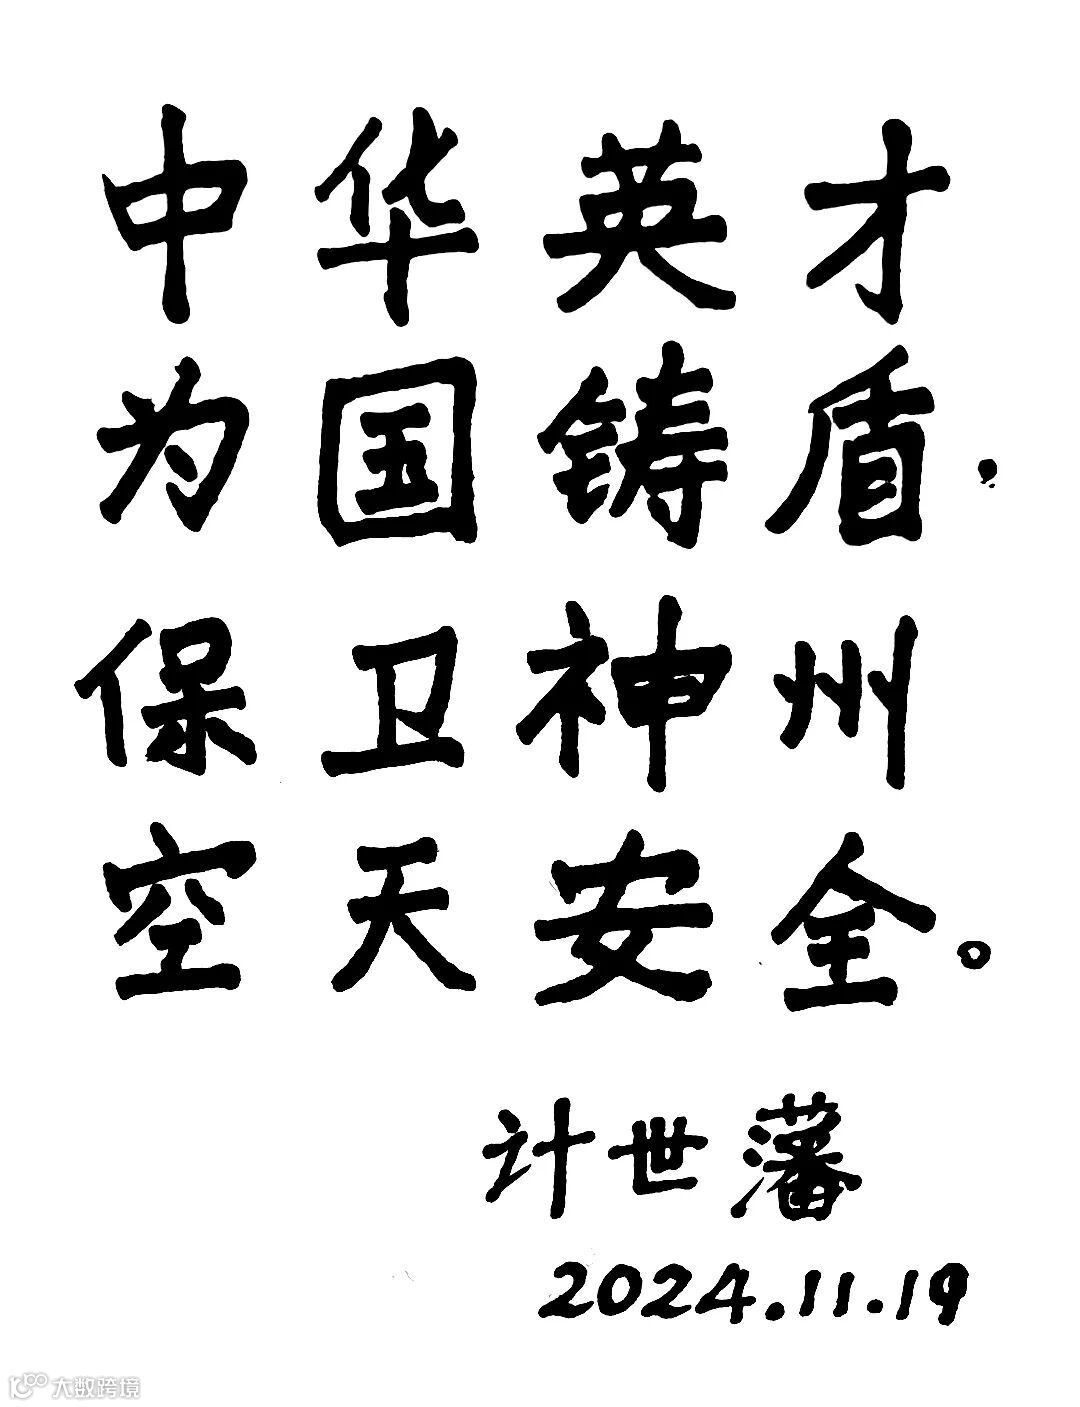 中华英才
为国铸盾.
保卫神州
空天安全。
计世藩
2024.11.19
大数跨境